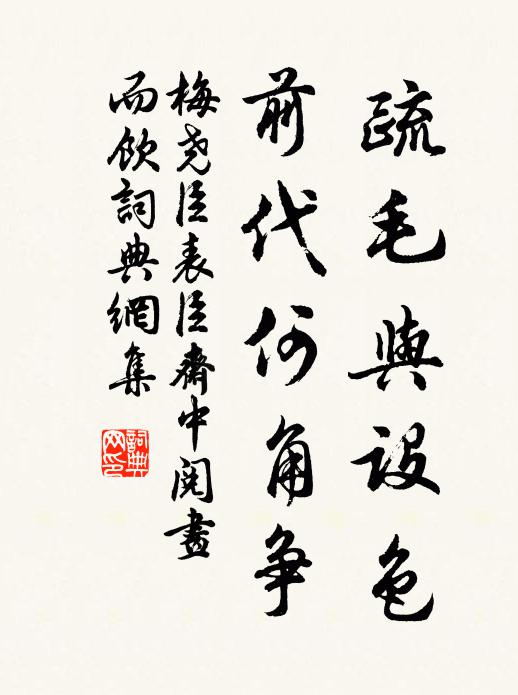 疏毛與設色
前代何角爭
梅堯臣表臣齋中閱畫
而飲詞典網集
詞典網印